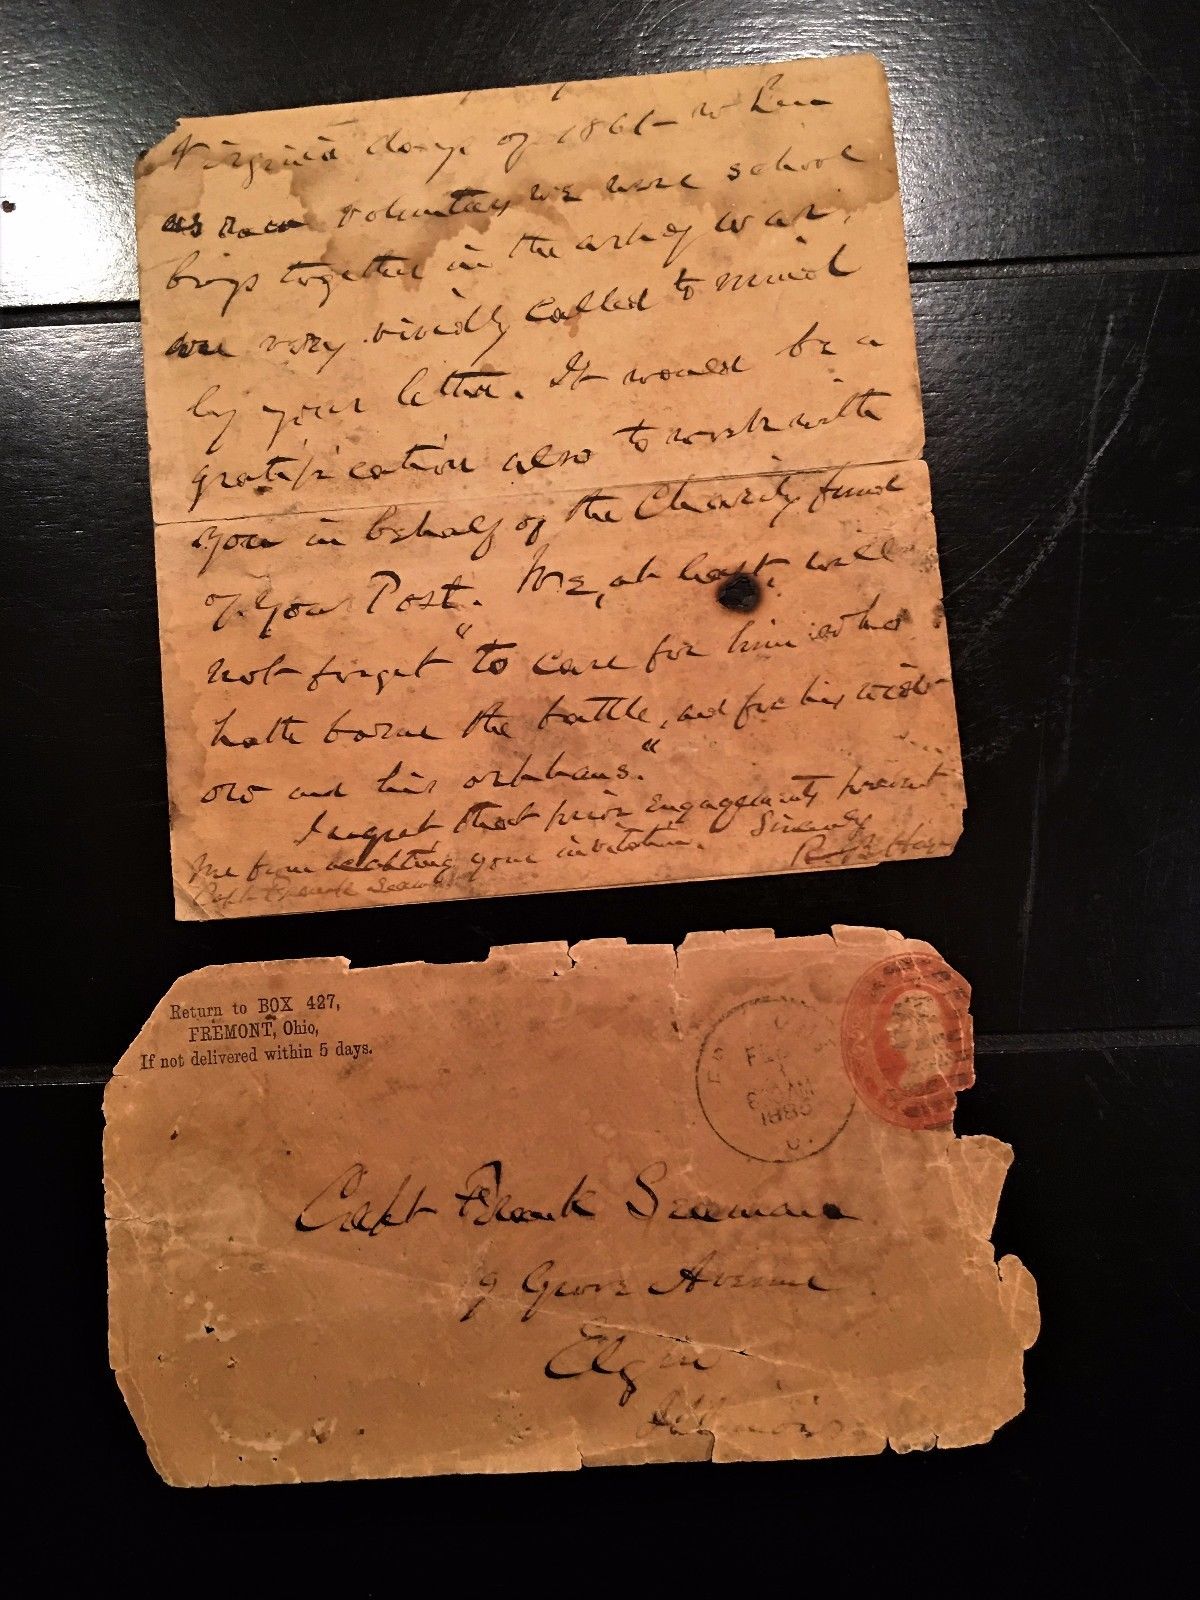 Virginia days of 1861 - when
as raw voluntary we were school
boys together in the arts of war,
are very vividly called to mind
by your letter. It would be a
gratification also to work with
you in behalf of the Charity fund
of your Post. We, at least, will
not forget "to care for him who
hath borne the battle, and for his wid-
ow and his orphans."
I regret that prior engagements prevent
me from accepting your invitation. Sincerely
R. B. Hayes
Capt Frank Seaman
Return to BOX 427,
FREMONT, Ohio,
If not delivered within 5 days.
FEB
Capt Frank Seaman
19 Grove Avenue
Elgin
Illinois